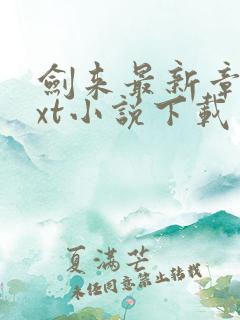 劍来最新章
xt小说下载
夏满芒
未经同意禁止转载